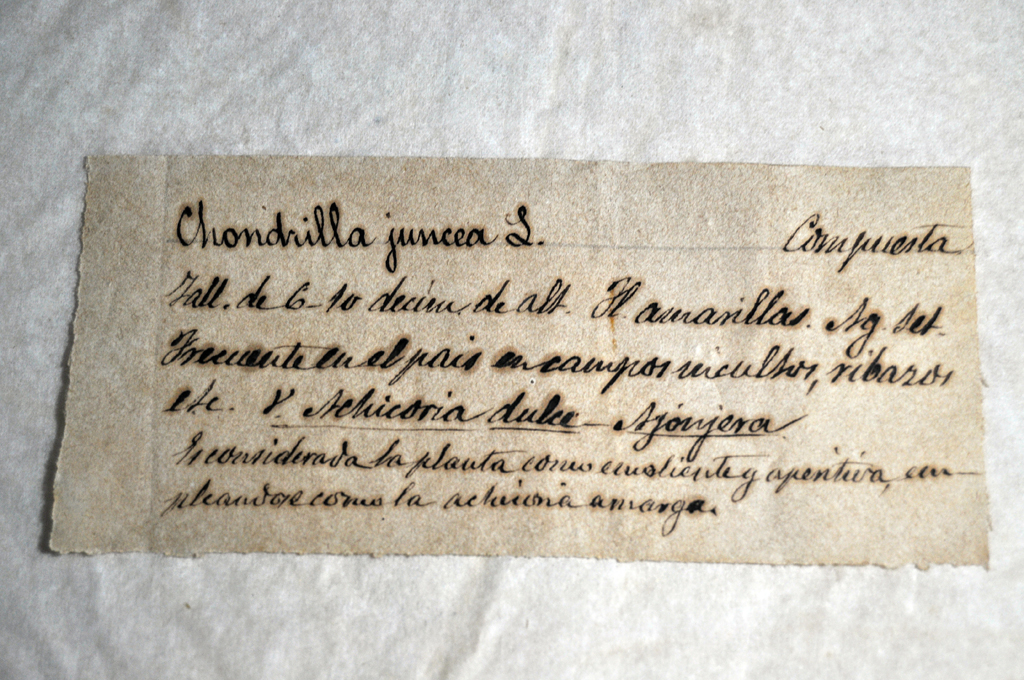 Chondrilla juncea L. Compuesta
Tall. de 6-10 decim. de alt. Fl amarillas. Ag. Set.
Frecuente en el pais en campos incultos, ribazos
etc. V. Achicoria dulce - Ajonjera
Es considerada la planta como emoliente y aperitiva, em-
pleandose como la achicoria amarga.